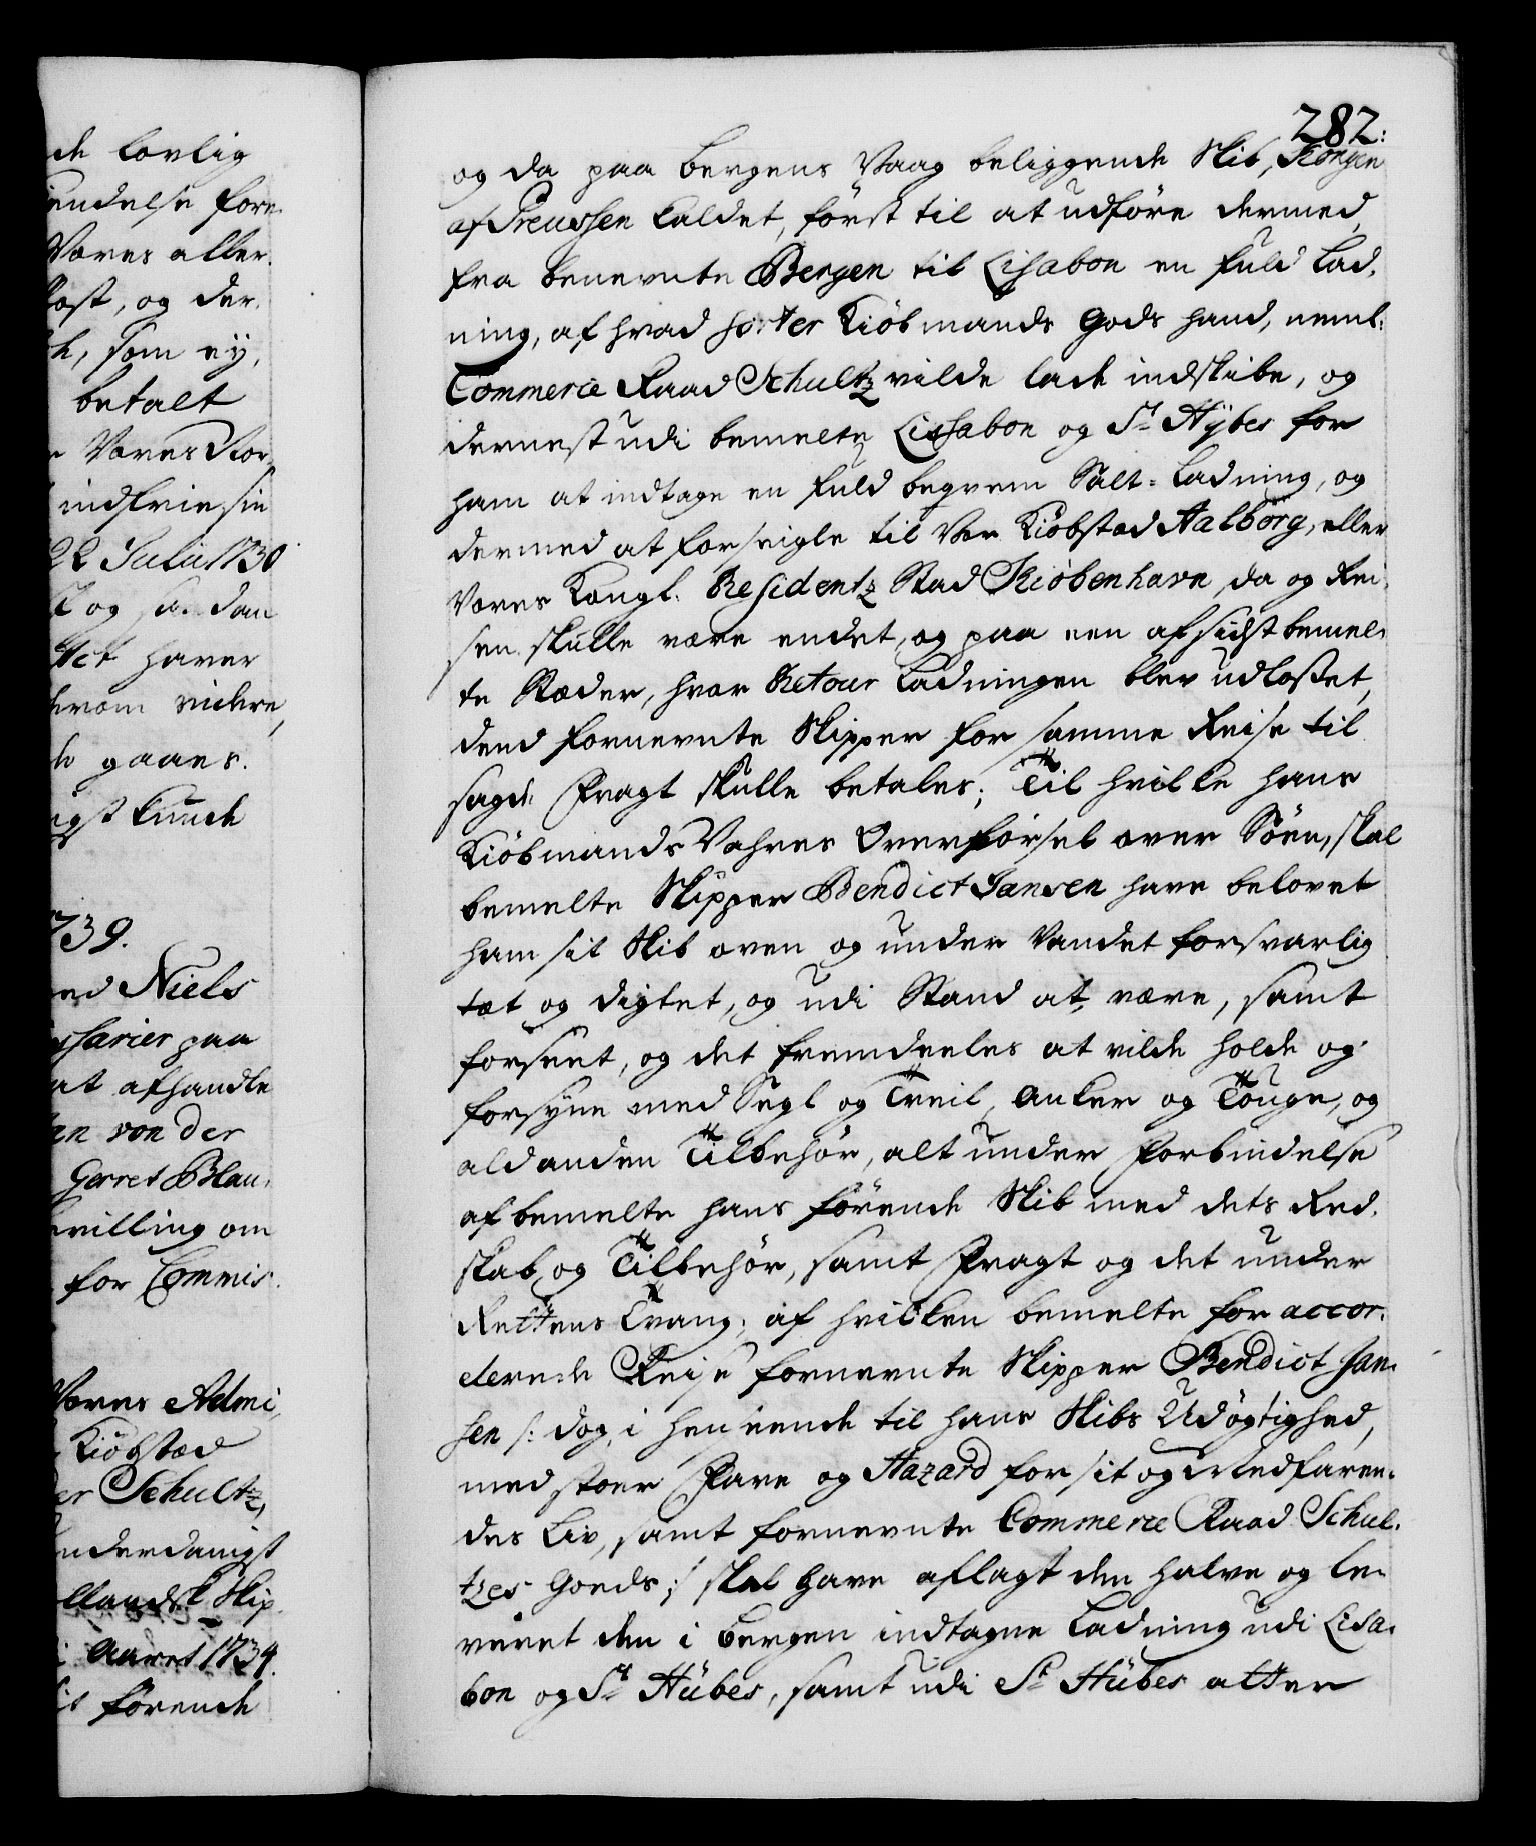 de lovlig
endelse fore
Vores aller
ost, og der
h, som ey,
betalt
Vores Stor
indfrie sin
22 Julii 1730
og saadan
Act haver
hvorom videre,
gaaes.
igst kunde
739.
ed Niels
ssarier paa
at afhandle
an von der
Gerret Blau
villing om
for Commis
Vores Admi
Kiöbstæd
er Schultz,
underdanigst
llandsk Skip
i Aaret 1734.
it förende
282:
og da paa Bergens Vaag beliggende Skib, Kongen
af Preussen kaldet, først til at udføre dermed,
fra benevnte Bergen til Lisabon en fuld Lad,
ning, af hvad sorter Kiöbmands Gods hand, neml:
Commerce Raad Schultz vilde lade indskibe, og
dernest udi bemelte Lissabon og St Hÿbes for
ham at indtage en fuld beqvem Salt= Ladning, og
dermed at forseigle til Vor Kiöbstad Aalborg, eller
Vores Kongl. Residentz Stad Kiöbenhavn, da og Rei,
sen skulle være endet, og paa een af sidst bemel,
te Stæder, hvor Retour Ladningen blev udlosset,
dend fornevnte Skipper for samme Reise til
sagde Fragt skulle betales; Til hvilke hans
Kiöbmands Vahres Overførsel over Söen, skal
bemelte Skipper Bendict Jansen have belovet
ham sit Skib oven og under Vandet forsvarlig
tæt og digtet, og udi Stand at være, samt
forseet, og det fremdeeles at vilde holde og
forsyne med Segl og Treil, Anker og Touge, og
ald anden Tilbehör, alt under Forbindelse
af bemelte hans förende Skib med dets Red,
skab og Tilbehör, samt Fragt og det under
Rettens Tvang; af hvilken bemelte for accor,
derede Reise fornevnte Skipper Bendict Jan,
sen /: dog, i henseende til hans Skibs Udögtighed,
med stoer Fare og Hazard for sit og Medfaren,
des Liv, samt fornevnte Commerce Raad Schul,
tzes Goeds :/ skal have aflagt den halve og le,
veret den i Bergen indtagne Ladning udi Lisa,
bon og St Hübes, samt udi St Hübes atter